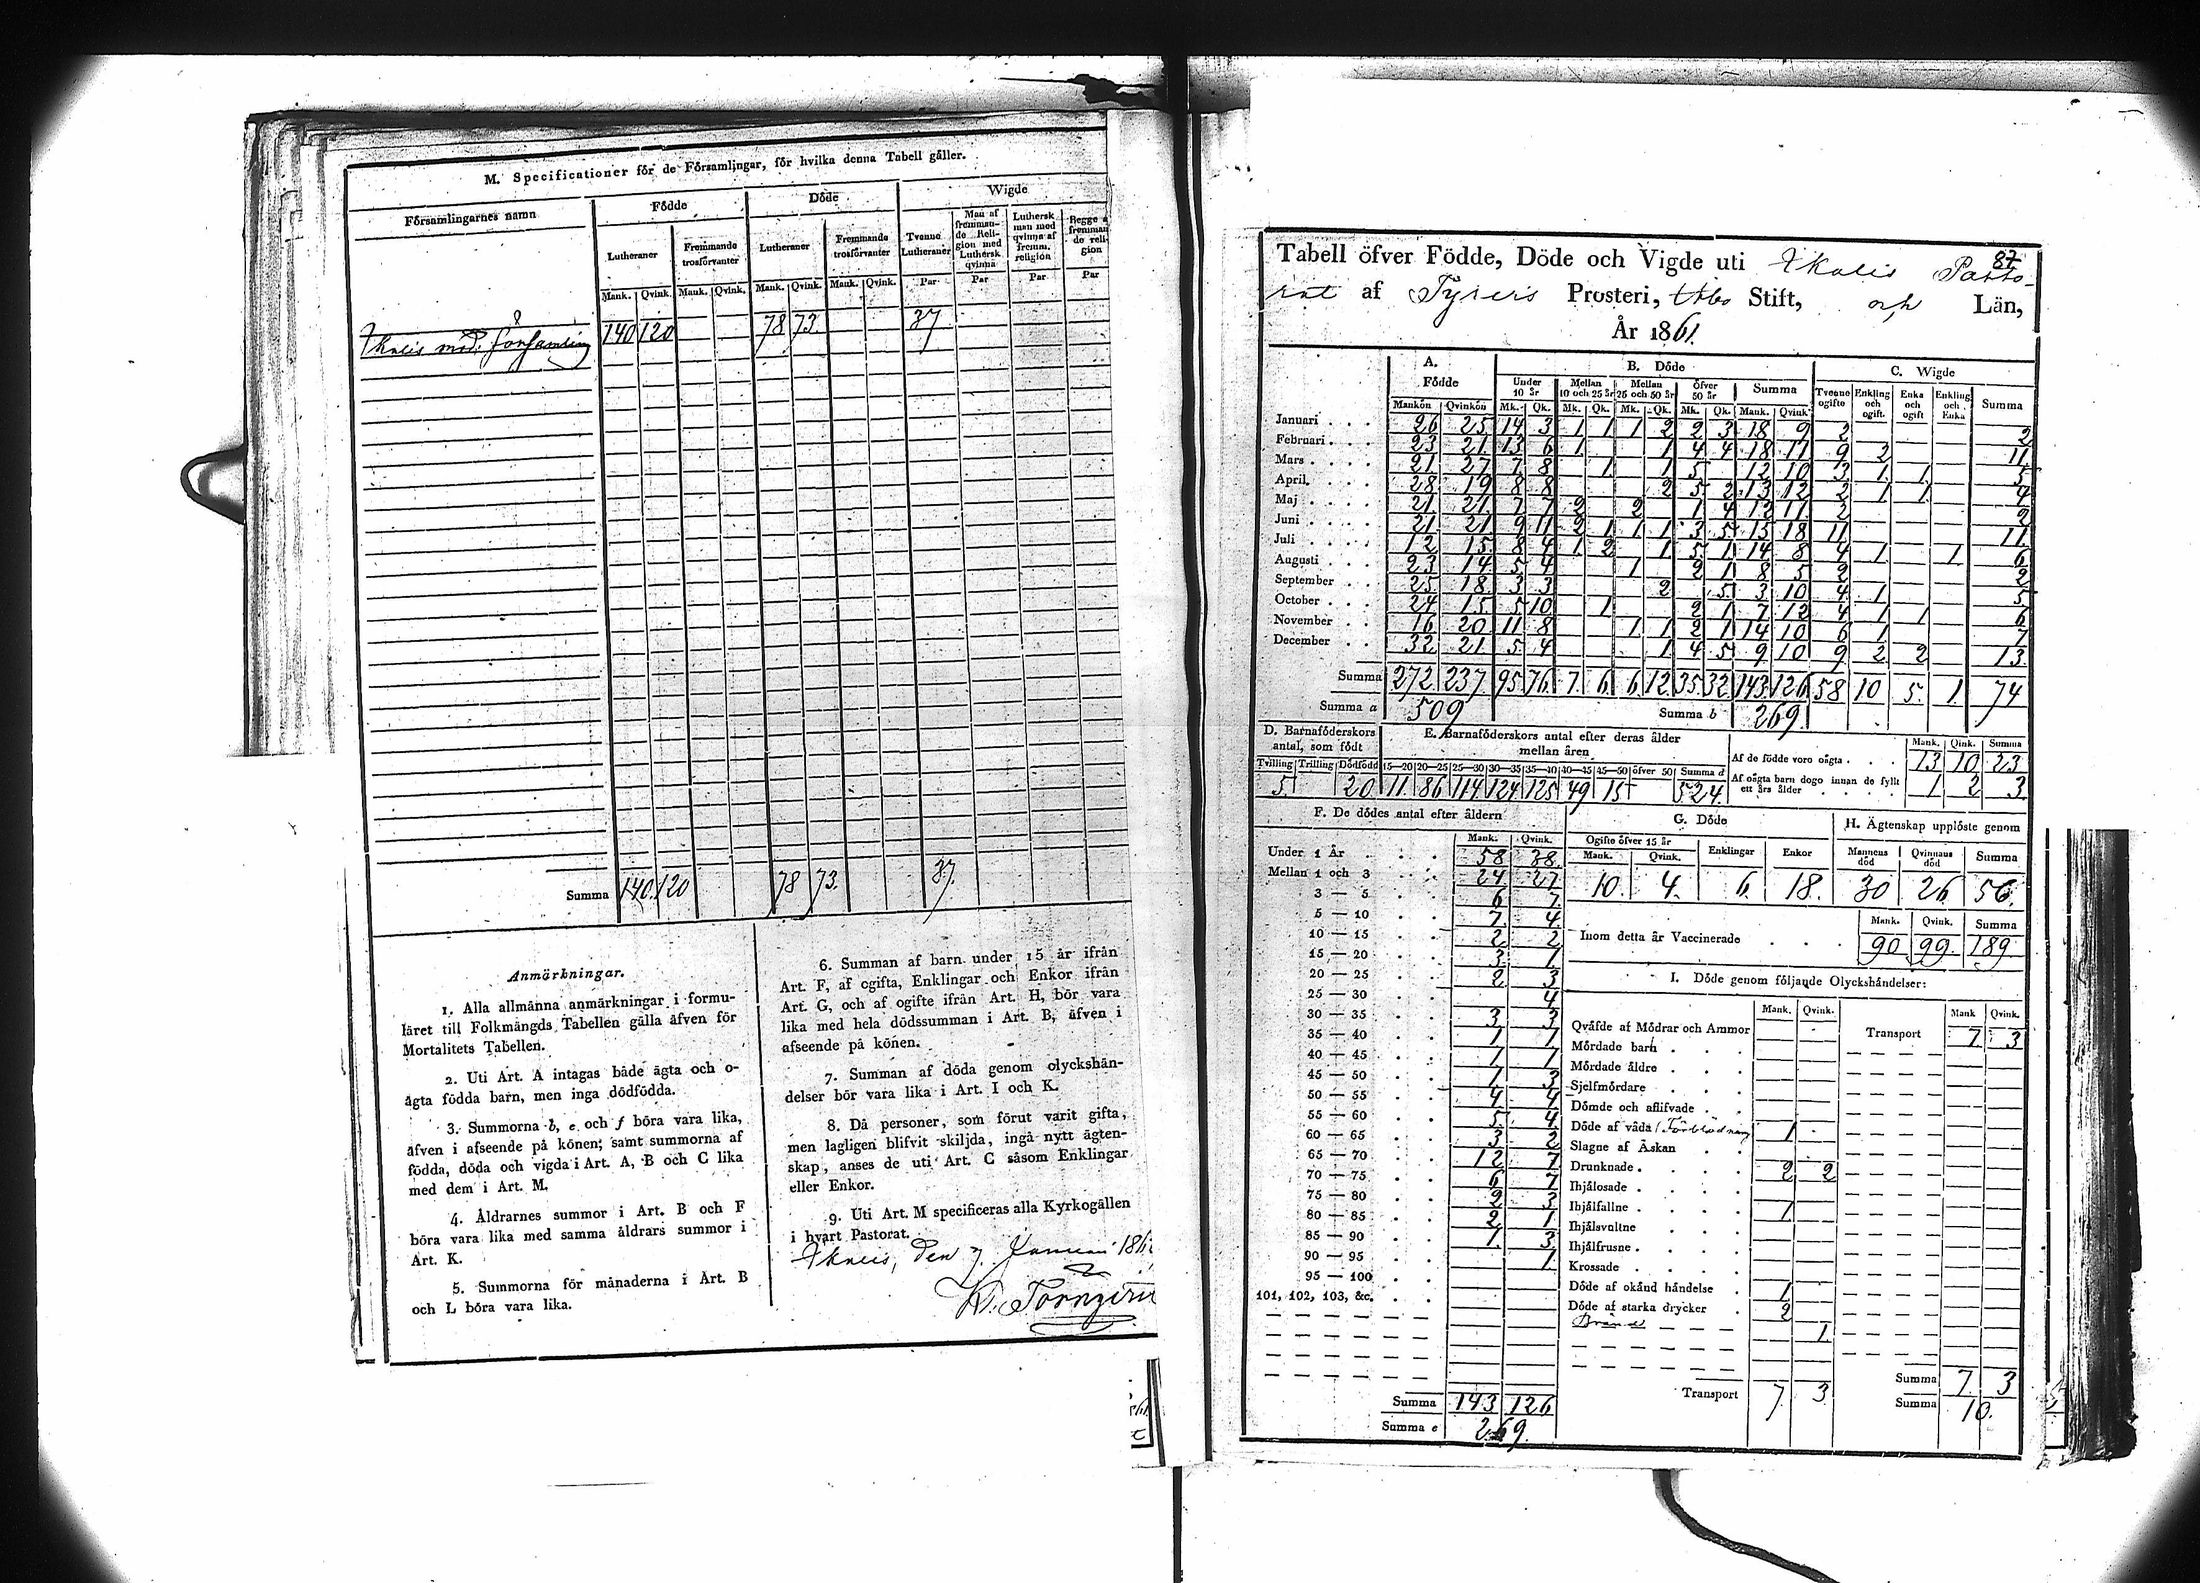 M. Specificationer för de Församlingar, för hvilka denna Tabell gäller.
Församlingarnes namn Födde Döde Wigde
Lutheraner Fremmande trosförvanter Lutheraner Fremmande trosförvanter Tvenne Lutheraner Man af fremmande Religion med Luthersk qvinna Luthersk man med qvinna af fremm. religion Begge af fremmande religion
Mank. Qvink. Mank. Qvink. Mank. Qvink. Mank. Qvink. Par Par Par Par
församling 140 120 78 73 37
Summa 140 120 78 73 37
Anmärkningar.
1. Alla allmänna anmärkningar i formu-
läret till Folkmängds Tabellen gälla äfven för
Mortalitets Tabellen.
2. Uti Art. A intagas både ägta och o-
ägta födda barn, men inga dödfödda.
3. Summorna b, e och f böra vara lika,
äfven i afseende på könen; samt summorna af
födda, döda och vigda i Art. A, B och C lika
med dem i Art. M.
4. Åldrarnes summor i Art. B och F
böra vara lika med samma åldrars summor i
Art. K.
5. Summorna för månaderna i Art. B
och L böra vara lika.
6. Summan af barn under 15 år ifrån
Art. F, af ogifta, Enklingar och Enkor ifrån
Art. G, och af ogifte ifrån Art. H, bör vara
lika med hela dödssumman i Art. B, äfven i
afseende på könen.
7. Summan af döda genom olyckshän-
delser bör vara lika i Art. I och K.
8. Då personer, som förut varit gifta,
men lagligen blifvit skiljda, ingå nytt ägten-
skap, anses de uti Art. C såsom Enklingar
eller Enkor.
9. Uti Art. M specificeras alla Kyrkogällen
i hvart Pastorat.
den 7 Januari
87
Tabell öfver Födde, Döde och Vigde uti Ikalis Pasto-
rat af Tyrvis Prosteri, Åbo Stift, och Län,
År 1861.
A. Födde B. Döde C. Wigde
Under 10 år Mellan 10 och 25 år Mellan 25 och 50 år Öfver 50 år Summa Tvenne ogifte Enkling och ogift. Enka och ogift Enkling och Enka Summa
Mankön Qvinkön Mk. Qk. Mk. Qk. Mk. Qk. Mk. Qk. Mank. Qvink.
Januari 26 25 14 3 1 1 1 2 2 3 18 9 2 2
Februari 23 21 13 6 1 1 4 4 18 11 9 2 11
Mars 21 27 7 8 1 1 5 12 10 3 1 1 5
April 28 19 8 8 2 5 2 13 12 2 1 1 4
Maj 21 21 7 7 2 2 1 4 12 11 2 2
Juni 21 21 9 11 2 1 1 1 3 5 15 18 11 11
Juli 12 15 8 4 1 2 1 5 1 14 8 4 1 1 6
Augusti 23 14 5 4 1 2 1 8 5 2 2
September 25 18 3 3 2 5 3 10 4 1 5
October 24 15 5 10 1 2 1 7 12 4 1 1 6
November 16 20 11 8 1 1 2 1 14 10 6 1 7
December 32 21 5 4 1 4 5 9 10 9 2 2 13
Summa 272 237 95 76 7 6 6 12 35 32 143 126 58 10 5 1 74
Summa a 509 Summa b 269
D. Barnaföderskors antal, som födt
Tvilling Trilling Dödfödd
5 20
E. Barnaföderskors antal efter deras ålder mellan åren
15—20 20—25 25—30 30—35 35—40 40—45 45—50 öfver 50 Summa d
11 86 114 124 125 49 15 524
Mank. Qink. Summa
Af de födde voro oägta 13 10 23
Af oägta barn dogo innan de fyllt ett års ålder 1 2 3
F. De dödes antal efter åldern
Mank. Qvink.
Under 1 År 58 38
Mellan 1 och 3 24 27
3 — 5 6 7
5 — 10 7 4
10 — 15 2 2
15 — 20 3 1
20 — 25 2 3
25 — 30 4
30 — 35 3 3
35 — 40 1 1
40 — 45 1 1
45 — 50 1 3
50 — 55 4 4
55 — 60 5 4
60 — 65 3 2
65 — 70 12 7
70 — 75 6 7
75 — 80 2 3
80 — 85 2 1
85 — 90 1 3
90 — 95 1
95 — 100
101, 102, 103, &c.
Summa 143 126
Summa e 269
G. Döde
Ogifte öfver 15 år Enklingar Enkor
Mank. Qvink.
10 4 6 18
H. Ägtenskap upplöste genom
Mannens död Qvinnans död Summa
30 26 56
Mank. Qvink. Summa
Inom detta år Vaccinerade 90 99 189
I. Döde genom följande Olyckshändelser:
Mank. Qvink. Mank Qvink.
Qväfde af Mödrar och Ammor Transport 7 3
Mördade barn
Mördade äldre
Sjelfmördare
Dömde och aflifvade
Döde af våda (Förblödning 1
Slagne af Åskan
Drunknade 2 2
Ihjälosade
Ihjälfallne 1
Ihjälsvultne
Ihjälfrusne
Krossade
Döde af okänd händelse 1
Döde af starka drycker 2
Bränd 1
Transport 7 3
Summa 7 3
Summa 10